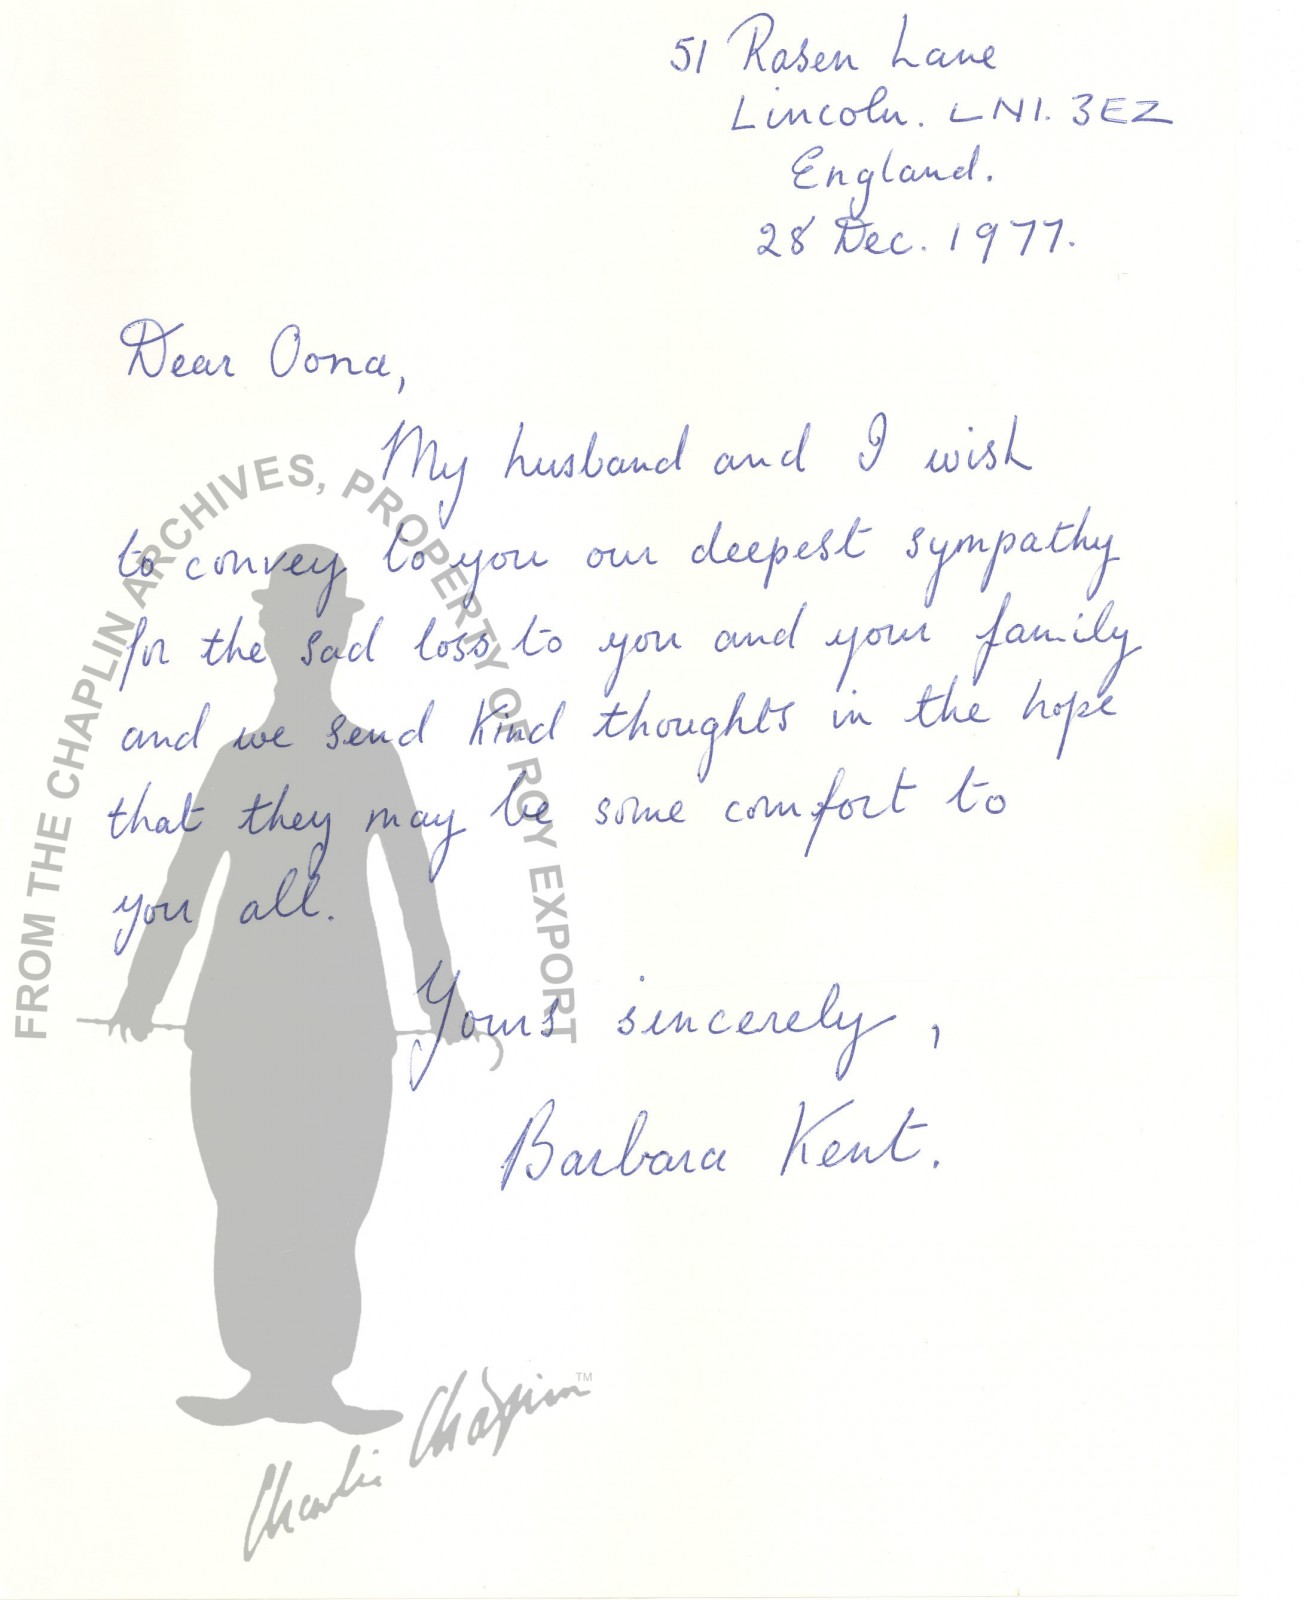 51 Rasen Lane
Lincoln. LN1. 3EZ
England.
28 Dec. 1977.
Dear Oona,
My husband and I wish
to convey to you our deepest sympathy
for the sad loss to you and your family
and we send kind thoughts in the hope
that they may be some comfort to
you all.
Yours sincerely,
Barbara Kent.
FROM THE CHAPLIN ARCHIVES, PROPERTY OF ROY EXPORT
Charlie Chaplin™